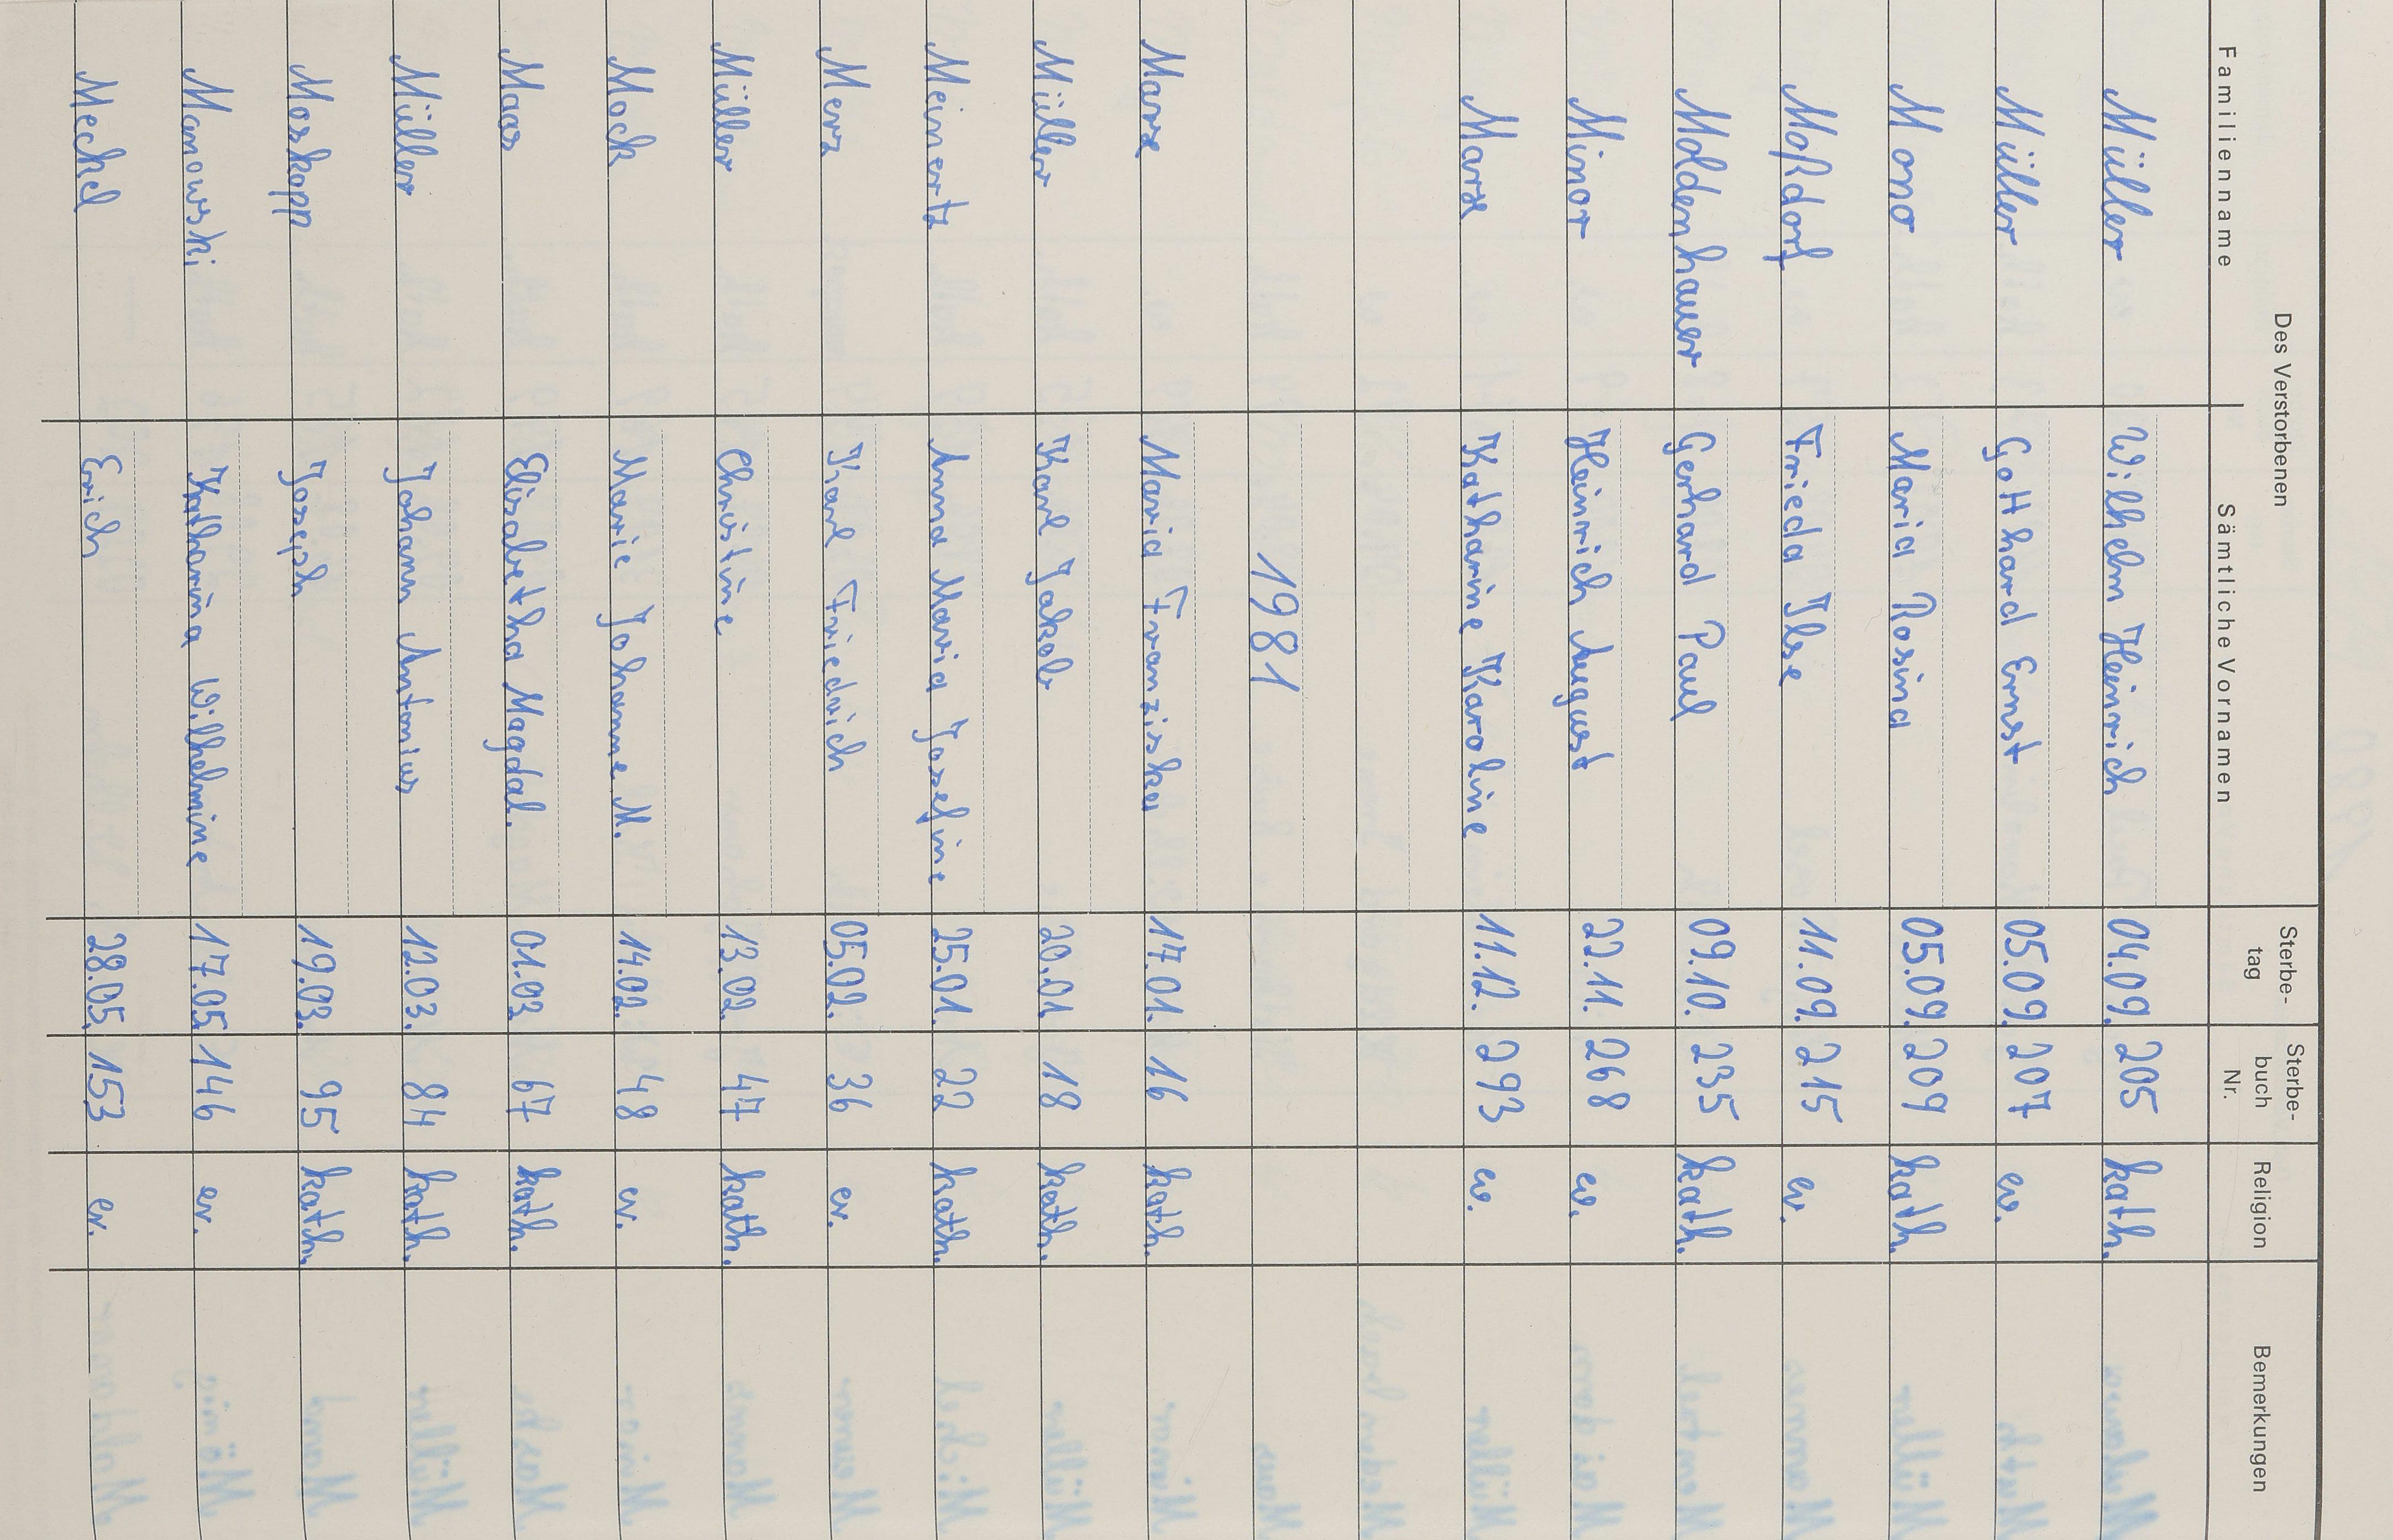 Des Verstorbenen
Familienname Sämtliche Vornamen Sterbe-tag Sterbe-buch Nr. Religion Bemerkungen
Müller Wilhelm Heinrich 04.09. 205 kath.
Müller Gotthard Ernst 05.09. 207 ev.
Mono Maria Rosina 05.09. 209 kath.
Moßdorf Frieda Ilse 11.09. 215 ev.
Moldenhauer Gerhard Paul 09.10. 235 kath.
Minor Heinrich August 22.11. 268 ev.
Marx Katharine Karoline 11.12. 293 ev.
1981
Marx Maria Franziska 17.01. 16 kath.
Müller Karl Jakob 20.01. 18 kath.
Meinertz Anna Maria Josefine 25.01. 22 kath.
Merz Karl Friedrich 05.02. 36 ev.
Müller Christine 13.02. 47 kath.
Mock Marie Johanne M. 14.02. 48 ev.
Maas Elisabetha Magdal. 01.03. 67 kath.
Müller Johann Antonius 12.03. 84 kath.
Moskopp Joseph 19.03. 95 kath.
Manowski Katharina Wilhelmine 17.05. 146 ev.
Meckel Erich 28.05. 153 ev.